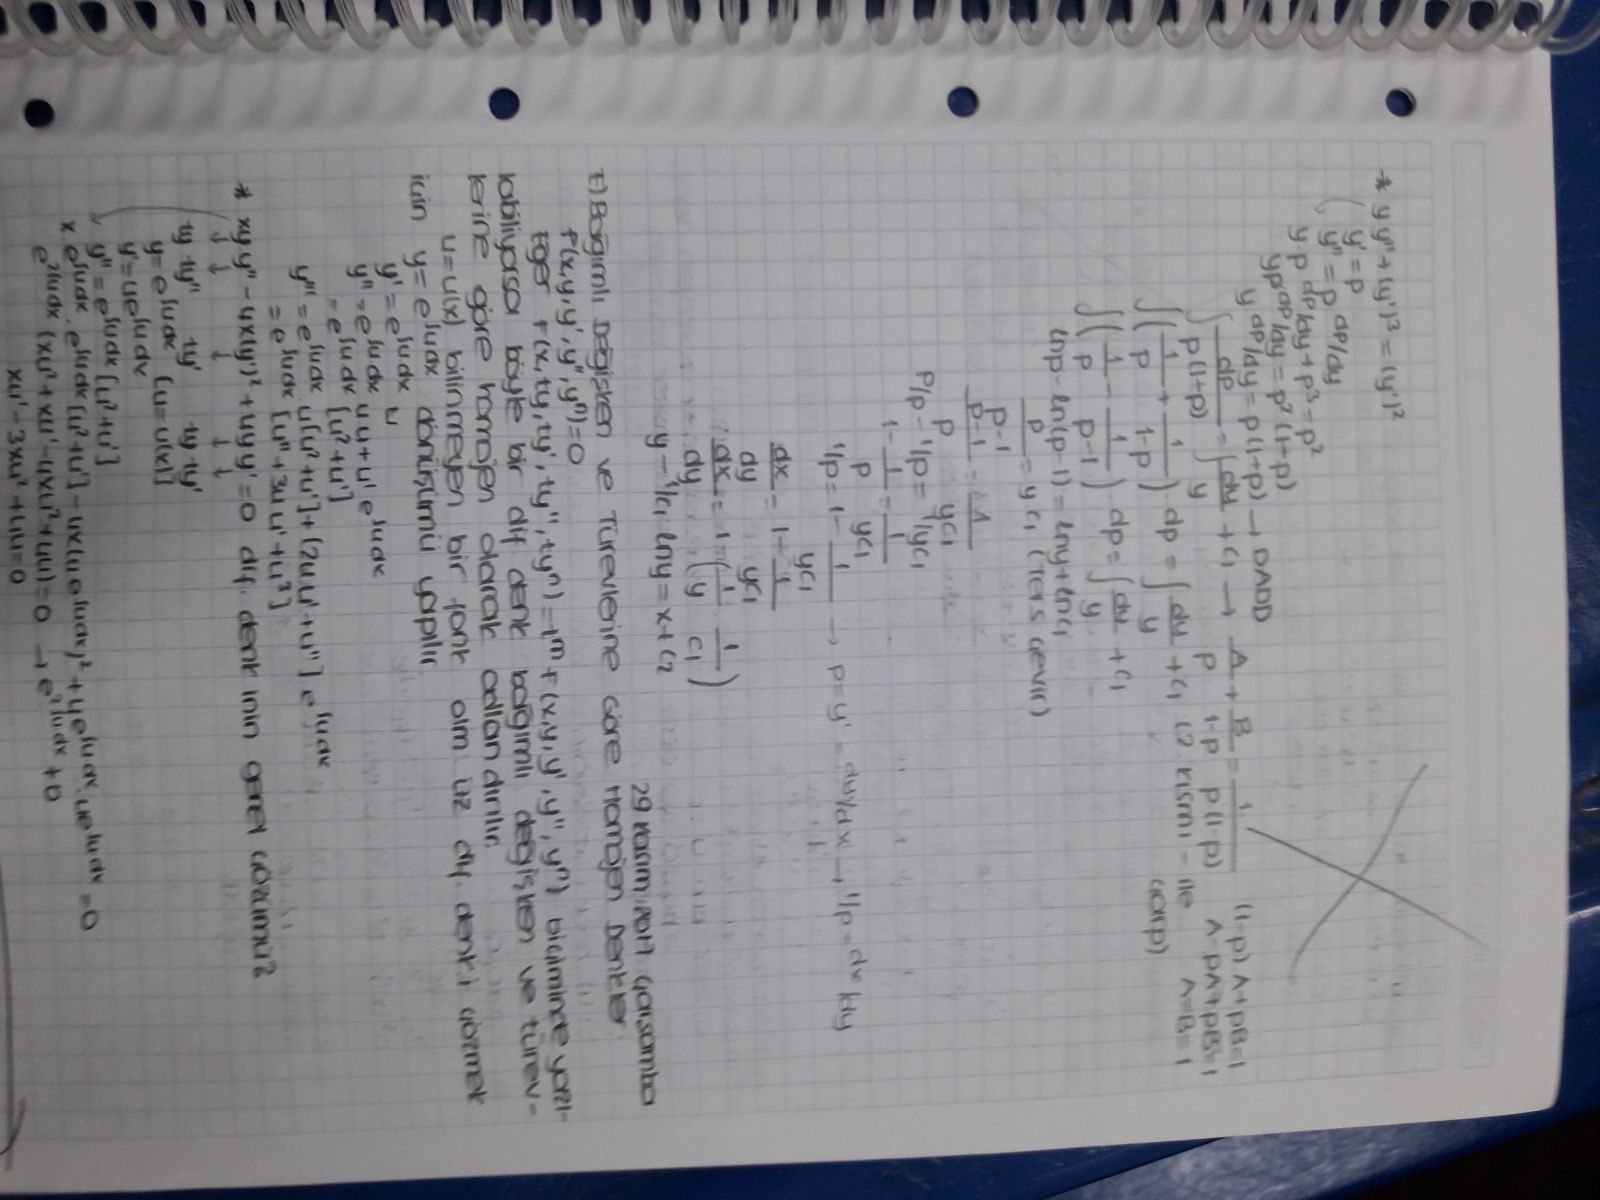 * yy"+(y')³=(y')²
y'=p
y"=p dp/dy
y.p dp/dy+p³=p²
yp dp/dy=p²(1-p)
y dp/dy=p(1-p) → DADD
∫ dp/p(1-p) = ∫ dy/y + c₁ → A/p + B/1-p = 1/p(1-p) (1-p)A+pB=1
A-pA+pB=1
A=B=1
∫(1/p + 1/1-p).dp = ∫ dy/y + c₁ (2. kısmı - ile çarp)
∫(1/p - 1/p-1).dp = ∫ dy/y + c₁
lnp-ln(p-1)=lny+lnc₁
p/p-1 = yc₁ (Ters çevir)
p-1/p = 1/yc₁
p/p-1/p=1/yc₁
1-1/p=1/yc₁
1/p=1-1/yc₁ → p=y'=dy/dx → 1/p=dx/dy
dx/dy=1-1/yc₁
dx/dy=1-(1/y 1/c₁)
y-1/c₁ lny=x+c₂
29 Kasım 2017 Çarşamba
Bağımlı Değişken ve Türevlerine Göre Homojen Denkler
F(x,y,y',y",yⁿ)=0
Eğer F(x,ty,ty',ty",tyⁿ)=tᵐ F(x,y,y',y",yⁿ) biçiminde yazı-
labiliyorsa böyle bir dif denk bağımlı değişken ve türev-
lerine göre homojen olarak adlandırılır.
u=u(x) bilinmeyen bir fonk olm üz dif. denk i çözmek
için y=e^∫udx dönüşümü yapılır.
y'=e^∫udx u
y"=e^∫udx uu+u' e^∫udx
=e^∫udx [u²+u']
y'''=e^∫udx u[u²+u']+[2uu'+u"] e^∫udx
=e^∫udx [u"+3uu'+u³]
* xyy"-4x(y')²+4yy'=0 dif. denk inin genel çözümü?
↓ ↓ ↓ ↓ ↓
ty ty" ty' ty ty'
y=e^∫udx [u=u(x)]
y'=ue^∫udx
y"=e^∫udx [u²+u']
x.e^∫udx.e^∫udx [u²+u']-4x(ue^∫udx)²+4e^∫udx.ue^∫udx=0
e^2∫udx (xu²+xu'-4xu²+4u)=0 → e^2∫udx ≠0
xu'-3xu²+4u=0